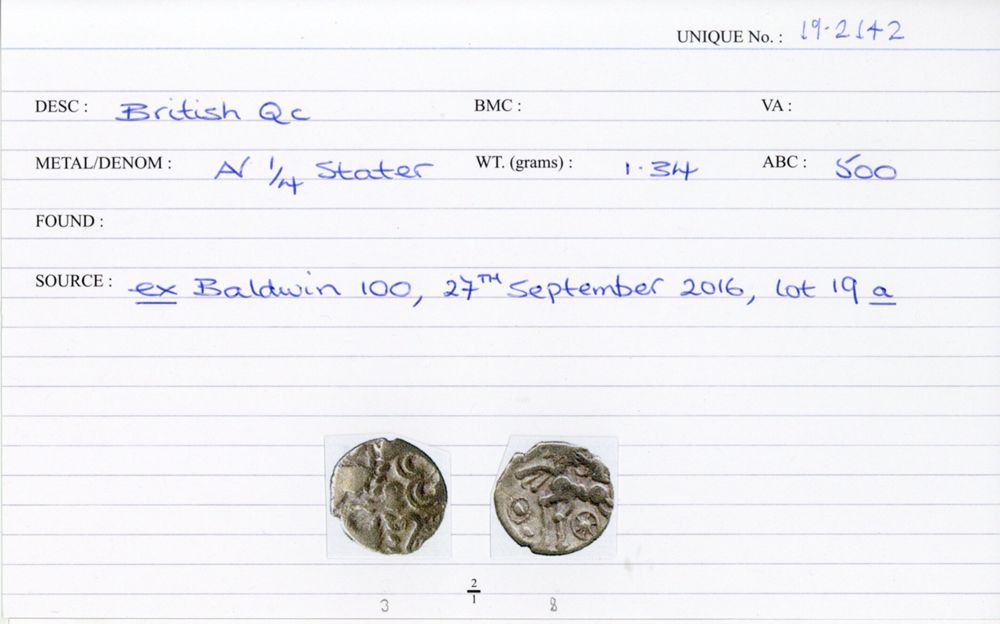 UNIQUE No. : 19-2142
DESC : British Qc BMC : VA :
METAL/DENOM : AV 1/4 Stater WT. (grams) : 1.34 ABC : 500
FOUND :
SOURCE : ex Baldwin 100, 27TH September 2016, lot 19 a
2/1
3 8